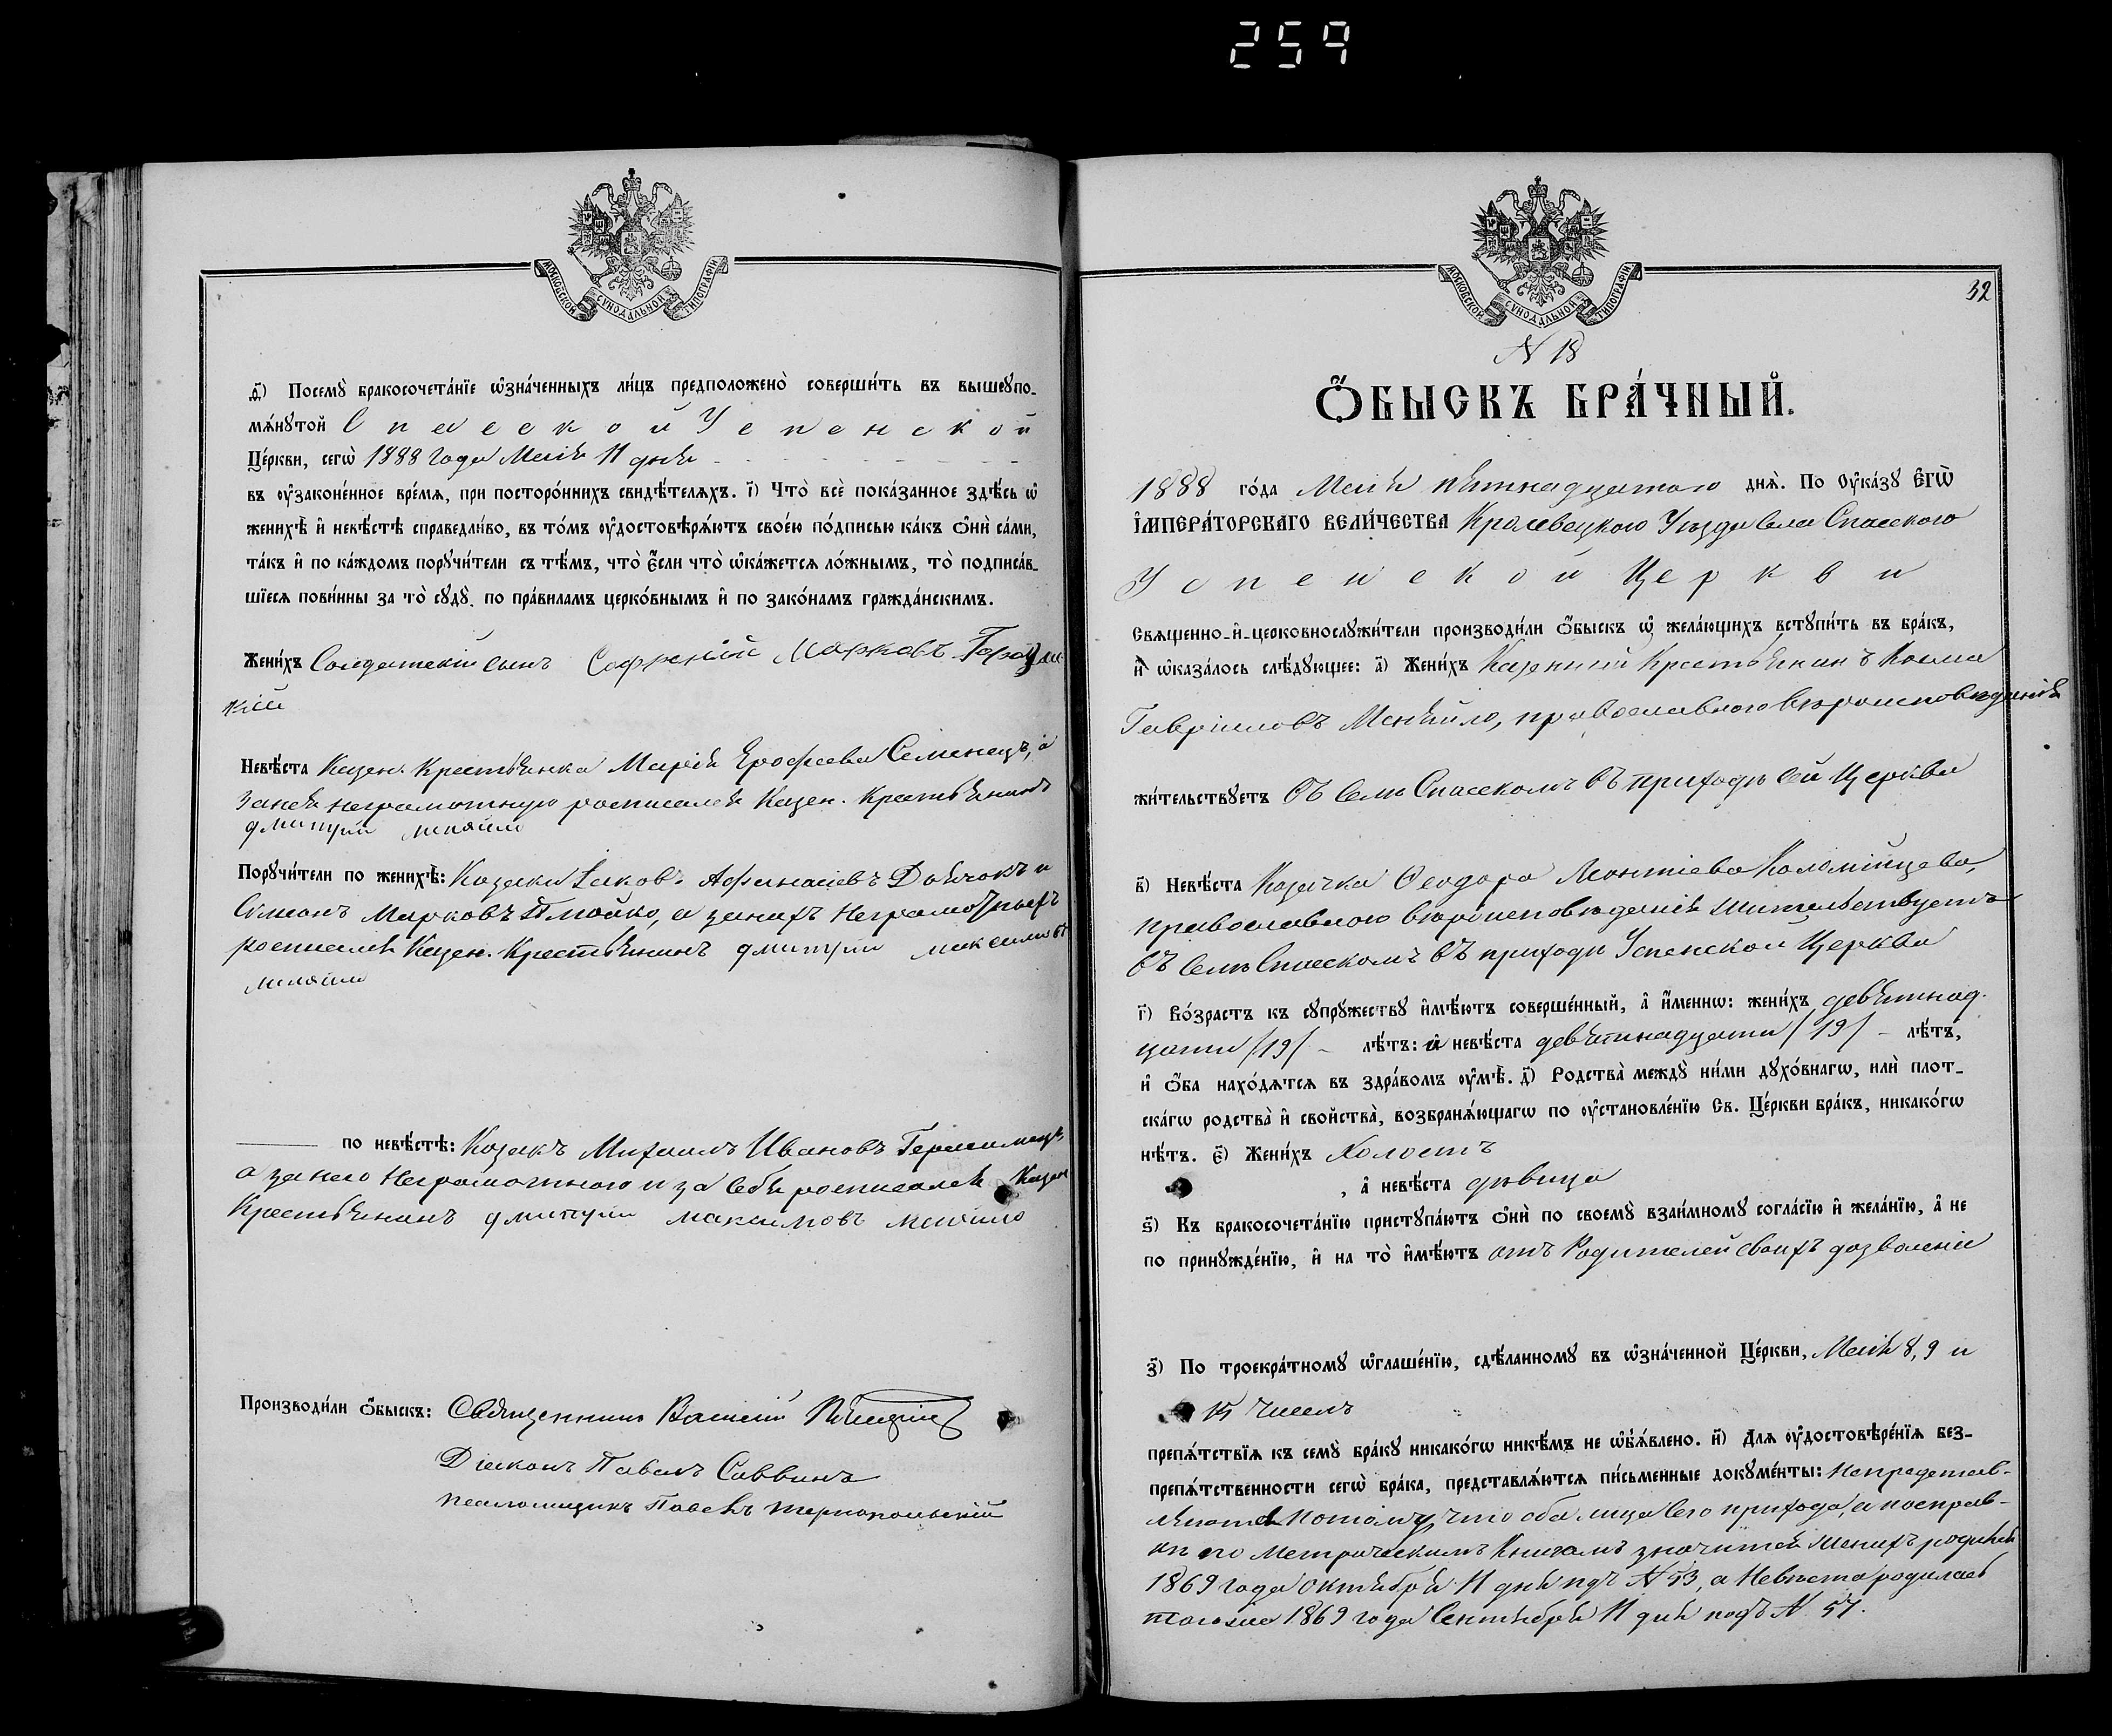 259
МОСКОВСКОЙ СѴНОДАЛЬНОЙ ТИПОГРАФІИ
д҃і) Посемꙋ̀ бракосочета́нїе ѡ҆зна́ченныхъ ли́цъ предположено̀ соверши́ть въ вышеꙋпо-
мѧ́нꙋтой Спасской Успенской
Це́ркви, сегѡ̀ 1888 года Маія 11 дня
въ ᲂу҆законе́нное вре́мѧ, при посторо́ннихъ свидѣ́телѧхъ. і҃) Что̀ всѐ пока́занное здѣ́сь ѡ҆
женихѣ̀ и҆ невѣ́стѣ справедли́во, въ то́мъ ᲂу҆достовѣрѧ́ютъ свое́ю по́дписью ка́къ ѻ҆нѝ са́ми,
та́къ и҆ по ка́ждомъ порꙋчи́тели съ тѣ́мъ, что̀ є҆́сли что̀ ѡ҆ка́жетсѧ ло́жнымъ, то̀ подписа́в-
шїесѧ пови́нны за то̀ сꙋдꙋ̀ по пра́виламъ церко́внымъ и҆ по зако́намъ гражда́нскимъ.
Жени́хъ Солдатскій сынъ Софроній Марковъ
кій
Невѣ́ста Казен. Крестьянка Марія Ерофеева Семенецъ, а
за нея неграмотную росписался Казен. Крестьянинъ
дмитрий
Порꙋчи́тели по женихѣ̀: Козаки Іаковъ Афанасіевъ и
Симеонъ Марковъ а за нихъ неграмотныхъ
росписался Казен. Крестьянинъ дмитрий максимовъ
по невѣ́стѣ: Козакъ Михаилъ Ивановъ
а за него неграмотного и за себя росписался Казен
Крестьянинъ дмитрий максимовъ
Производи́ли ѻ҆́быскъ: Священникъ Василій
Діаконъ Павелъ Саввинъ
псаломщикъ Павелъ тернопольскій
МОСКОВСКОЙ СѴНОДАЛЬНОЙ ТИПОГРАФІИ
32
N 18
Ѻ҆́БЫСКЪ БРА́ЧНЫЙ.
1888 го́да Маія пятнадцатого днѧ̀. По Оу҆ка́зꙋ Є҆гѡ̀
І҆МПЕРА́ТОРСКАГО ВЕЛИ́ЧЕСТВА Кролевецкого Уѣзда Села Спасского
Успенской Церкви
Свѧщенно-и҆-церковнослꙋжи́тели производи́ли ѻ҆́быскъ ѡ҆ жела́ющихъ встꙋпи́ть въ бра́къ,
и҆ ѡ҆каза́лось слѣ́дꙋющее: а҃) Жени́хъ Казенный Крестьянинъ Косма
Гавріиловъ Меняйло, православного вѣроисповѣданія
жи́тельствꙋетъ въ Селѣ Спасскомъ въ приходѣ сей Церкви
в҃) Невѣ́ста Козачка Феодора Леонтіева Коломійцева,
православного вѣроисповѣданія жительствуетъ
въ Селѣ Спасскомъ въ приходѣ Успенской Церкви
г҃) Во́зрастъ къ сꙋпрꙋ́жествꙋ и҆мѣ́ютъ соверше́нный, а҆ и҆́меннѡ: жени́хъ девятнад-
цати /19/ – лѣ́тъ: а҆ невѣ́ста девятнадцати /19/ – лѣ́тъ,
и҆ ѻ҆́ба нахо́дѧтсѧ въ здра́вомъ ᲂу҆мѣ̀. д҃) Родства̀ междꙋ̀ ни́ми дꙋхо́внагѡ, и҆лѝ плот-
ска́гѡ родства̀ и҆ сво́йства̀, возбранѧ́ющагѡ по ᲂу҆становле́нїю Св. Це́ркви бра́къ, никако́гѡ
нѣ́тъ. є҃) Жени́хъ Холостъ
, а҆ невѣ́ста дѣвица
ѕ҃) Къ бракосочета́нїю пристꙋпа́ютъ ѻ҆нѝ по своемꙋ̀ взаи́мномꙋ согла́сїю и҆ жела́нїю, а҆ не
по принꙋжде́нїю, и҆ на то̀ и҆мѣ́ютъ отъ Родителей своихъ дозволеніе
з҃) По троекра́тномꙋ ѡ҆глаше́нїю, сдѣ́ланномꙋ въ ѡ҆зна́ченной Це́ркви, Маія 8, 9 и
15 Чиселъ
препѧ́тствїѧ къ семꙋ̀ бра́кꙋ никако́гѡ никѣ́мъ не ѡ҆б̾ѧ́влено. и҃) Длѧ ᲂу҆достовѣре́нїѧ без-
препѧ́тственности сегѡ̀ бра́ка, представлѧ́ютсѧ пи́сьменные докꙋме́нты: Непредстав-
ляются потому, что оба лица сего прихода, а по справ-
кѣ по Метрическимъ Книгамъ значится Женихъ родился
1869 года Октября 11 дня подъ N 53, а Невѣста родилась
тогоже 1869 года Сентября 11 дня подъ N 51.